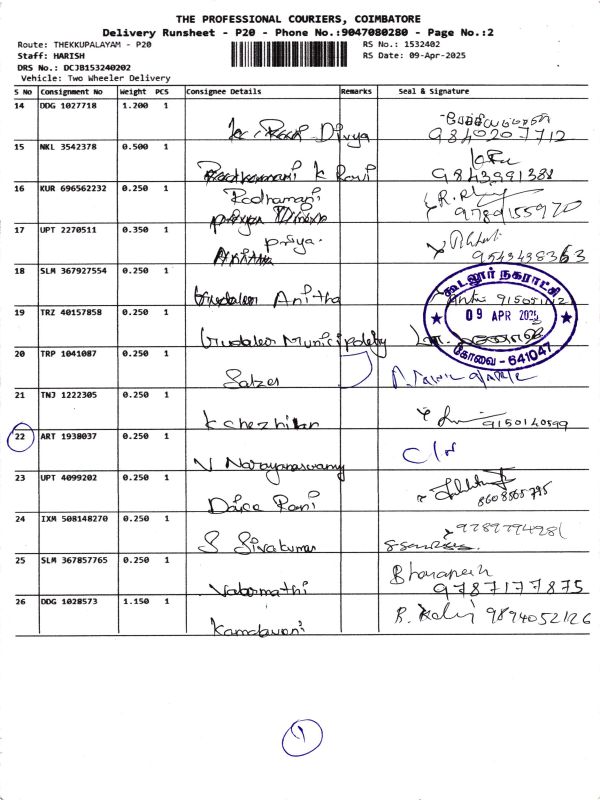 THE PROFESSIONAL COURIERS, COIMBATORE
Delivery Runsheet - P20 - Phone No.:9047080280 - Page No.:2
Route: THEKKUPALAYAM - P20
RS No.: 1532402
Staff: HARISH
RS Date: 09-Apr-2025
DRS No.: DCJB153240202
Vehicle: Two Wheeler Delivery
S No Consignment No Weight PCS Consignee Details Remarks Seal & Signature
14 DDG 1027718 1.200 1
Divya 9840207712
15 NKL 3542378 0.500 1
K Rani 9843991388
16 KUR 696562232 0.250 1
Radhamani
9789155970
17 UPT 2270511 0.350 1
Priya
9543438363
18 SLM 367927554 0.250 1
கூடலூர் நகராட்சி
Anitha
19 TRZ 40157858 0.250 1
09 APR 2025
Gudalur Municipality
கோவை - 641047
20 TRP 1041087 0.250 1
Salzer
21 TNJ 1222305 0.250 1
K Chezhian 9150140599
22 ART 1938037 0.250 1
V Narayanaswamy
23 UPT 4099202 0.250 1
Rani 8608565795
24 IXM 508148270 0.250 1
S Sivakumar
25 SLM 367857765 0.250 1
9787177875
26 DDG 1028573 1.150 1
9894052126
1